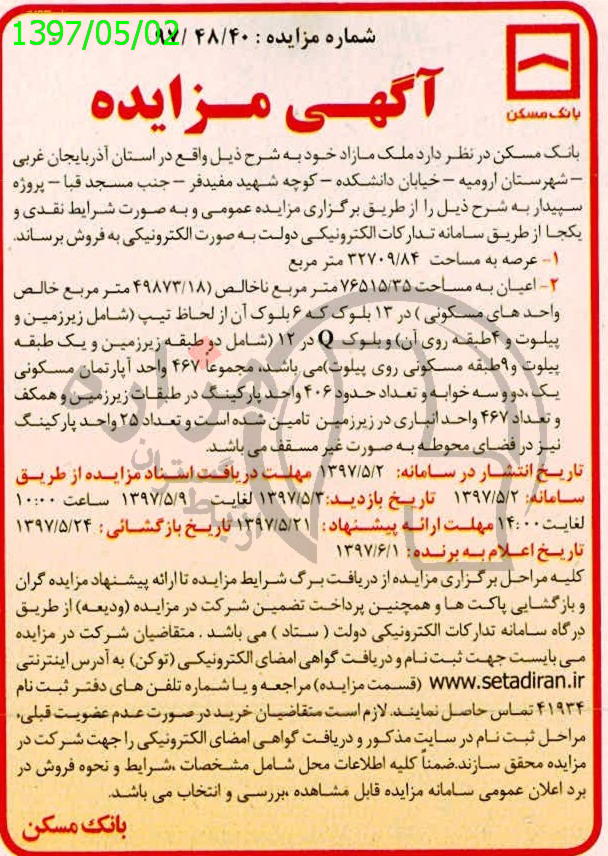 1397/05/02
شماره مزایده : ۹۷/ ۴۸/۴۰
بانک مسکن
آگهی مزایده
بانک مسکن در نظر دارد ملک مازاد خود به شرح ذیل واقع در استان آذربایجان غربی
– شهرستان ارومیه – خیابان دانشکده – کوچه شهید مفیدفر – جنب مسجد قبا – پروژه
سپیدار به شرح ذیل را از طریق برگزاری مزایده عمومی و به صورت شرایط نقدی و
یکجا از طریق سامانه تدارکات الکترونیکی دولت به صورت الکترونیکی به فروش برساند.
۱- عرصه به مساحت ۳۲۷۰۹/۸۴ متر مربع
۲- اعیان به مساحت ۷۶۵۱۵/۳۵ متر مربع ناخالص (۴۹۸۷۳/۱۸ متر مربع خالص
واحد های مسکونی ) در ۱۳ بلوک که ۶ بلوک آن از لحاظ تیپ (شامل زیرزمین و
پیلوت و ۴طبقه روی آن) و بلوک Q در ۱۲ (شامل دو طبقه زیرزمین و یک طبقه
پیلوت و۹طبقه مسکونی روی پیلوت)می باشد، مجموعا ۴۶۷ واحد آپارتمان مسکونی
یک ،دو و سه خوابه و تعداد حدود ۴۰۶ واحد پارکینگ در طبقات زیرزمین و همکف
و تعداد ۴۶۷ واحد انباری در زیرزمین تامین شده است و تعداد ۲۵ واحد پارکینگ
نیز در فضای محوطه به صورت غیر مسقف می باشد.
تاریخ انتشار در سامانه: ۱۳۹۷/۵/۲ مهلت دریافت اسناد مزایده از طریق
سامانه: ۱۳۹۷/۵/۲ تاریخ بازدید: ۱۳۹۷/۵/۳ لغایت ۱۳۹۷/۵/۹ ساعت ۱۰:۰۰
لغایت ۱۴:۰۰ مهلت ارائه پیشنهاد : ۱۳۹۷/۵/۲۱ تاریخ بازگشائی : ۱۳۹۷/۵/۲۴
تاریخ اعلام به برنده : ۱۳۹۷/۶/۱
کلیه مراحل برگزاری مزایده از دریافت برگ شرایط مزایده تا ارائه پیشنهاد مزایده گران
و بازگشایی پاکت ها و همچنین پرداخت تضمین شرکت در مزایده (ودیعه) از طریق
درگاه سامانه تدارکات الکترونیکی دولت ( ستاد ) می باشد . متقاضیان شرکت در مزایده
می بایست جهت ثبت نام و دریافت گواهی امضای الکترونیکی (توکن) به آدرس اینترنتی
www.setadiran.ir (قسمت مزایده) مراجعه و یا شماره تلفن های دفتر ثبت نام
۴۱۹۳۴ تماس حاصل نمایند. لازم است متقاضیان خرید در صورت عدم عضویت قبلی،
مراحل ثبت نام در سایت مذکور و دریافت گواهی امضای الکترونیکی را جهت شرکت در
مزایده محقق سازند.ضمناً کلیه اطلاعات محل شامل مشخصات ،شرایط و نحوه فروش در
برد اعلان عمومی سامانه مزایده قابل مشاهده ،بررسی و انتخاب می باشد.
بانک مسکن